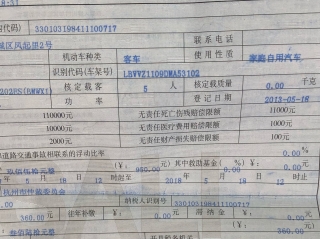 代码) 330103198411100717
联系电话
城区凤起里2号
机动车种类 客车 使用性质 家庭自用汽车
识别代码(车架号) LBVVZ1109DMA53102
核定载客 5 人 核定载质量 0.00 千克
功率 登记日期 2013-05-16
110000元 无责任死亡伤残赔偿限额 11000元
10000元 无责任医疗费用赔偿限额 1000元
2000元 无责任财产损失赔偿限额 100元
道路交通事故相联系的浮动比率 0.00%
(¥: 950.00 元) 其中救助基金(¥: 0.00 元)
月 日 12 时起至 2018 年 5 月 18 日 12 时止
杭州市仲裁委员会
纳税人识别号 330103198411100717
360.00 元 往年补缴 (¥: 0.00 元 滞纳金 (¥: 0.00 元
叁佰陆拾元整 (¥: 360.00 元)